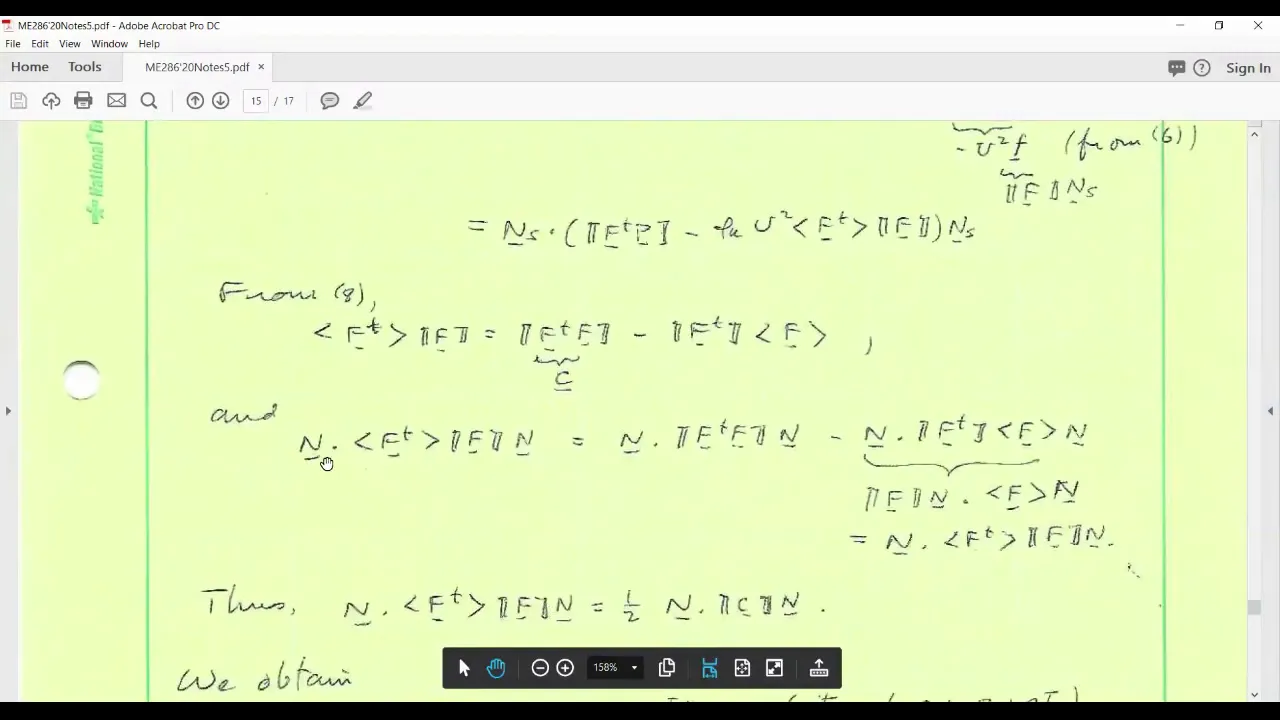 ME286'20Notes5.pdf - Adobe Acrobat Pro DC
File Edit View Window Help
Home Tools ME286'20Notes5.pdf × Sign In
15 / 17
National
- U²f (from (6))
⟦F⟧Ns
= Ns · (⟦FᵗP⟧ - U²<Fᵗ>⟦F⟧)Ns
From (8),
<Fᵗ>⟦F⟧ = ⟦FᵗF⟧ - ⟦Fᵗ⟧<F> ,
C
and
N · <Fᵗ>⟦F⟧N = N · ⟦FᵗF⟧N - N · ⟦Fᵗ⟧<F>N
⟦F⟧N · <F>N
= N · <Fᵗ>⟦F⟧N.
Thus, N · <Fᵗ>⟦F⟧N = 1/2 N · ⟦C⟧N .
We obtain
158%